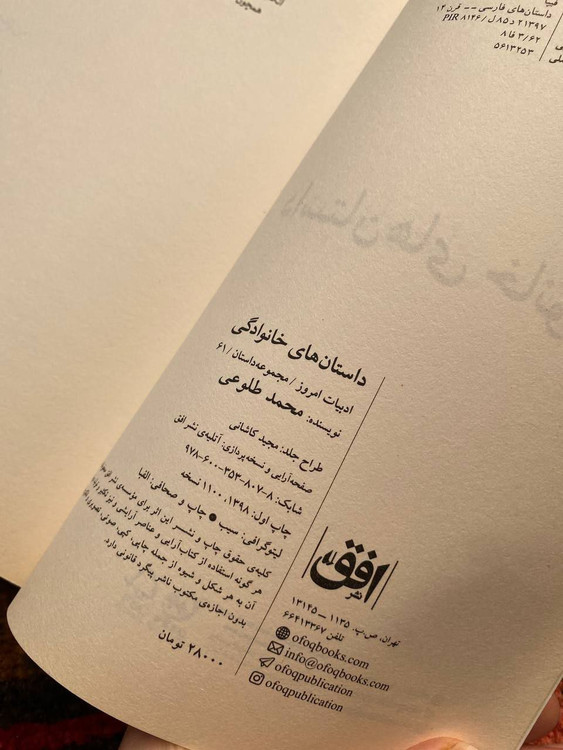 داستان‌های فارسی -- قرن ۱۴
۲۱۳۹۷ د ۸۵ ل / PIR ۸۱۴۶
۸ فا ۳/۶۲
۵۶۱۳۲۵۳
داستان‌های خانوادگی
ادبیات امروز / مجموعه‌داستان / ۶۱
نویسنده: محمد طلوعی
طراح جلد: مجید کاشانی
صفحه‌آرایی و نسخه‌پردازی: آتلیه‌ی نشر افق
شابک: ۸-۸۰۷-۳۵۳-۶۰۰-۹۷۸
چاپ اول: ۱۳۹۸، ۱۱۰۰ نسخه
لیتوگرافی: سیب ● چاپ و صحافی: الفبا
کلیه‌ی حقوق چاپ و نشر این اثر برای مؤسسه‌ی نشر افق
هر گونه استفاده از کتاب‌آرایی و عناصر آرایشی و نیز تکثیر و
آن به هر شکل و شیوه از جمله چاپی، کپی، صوتی، تصویری و
بدون اجازه‌ی مکتوب ناشر پیگرد قانونی دارد.
۲۸۰۰۰ تومان
نشر افق
تهران، ص.پ. ۱۱۳۵ – ۱۳۱۴۵
تلفن ۶۶۴۱۳۳۶۷
ofoqbooks.com
info@ofoqbooks.com
ofoqpublication
ofoqpublication